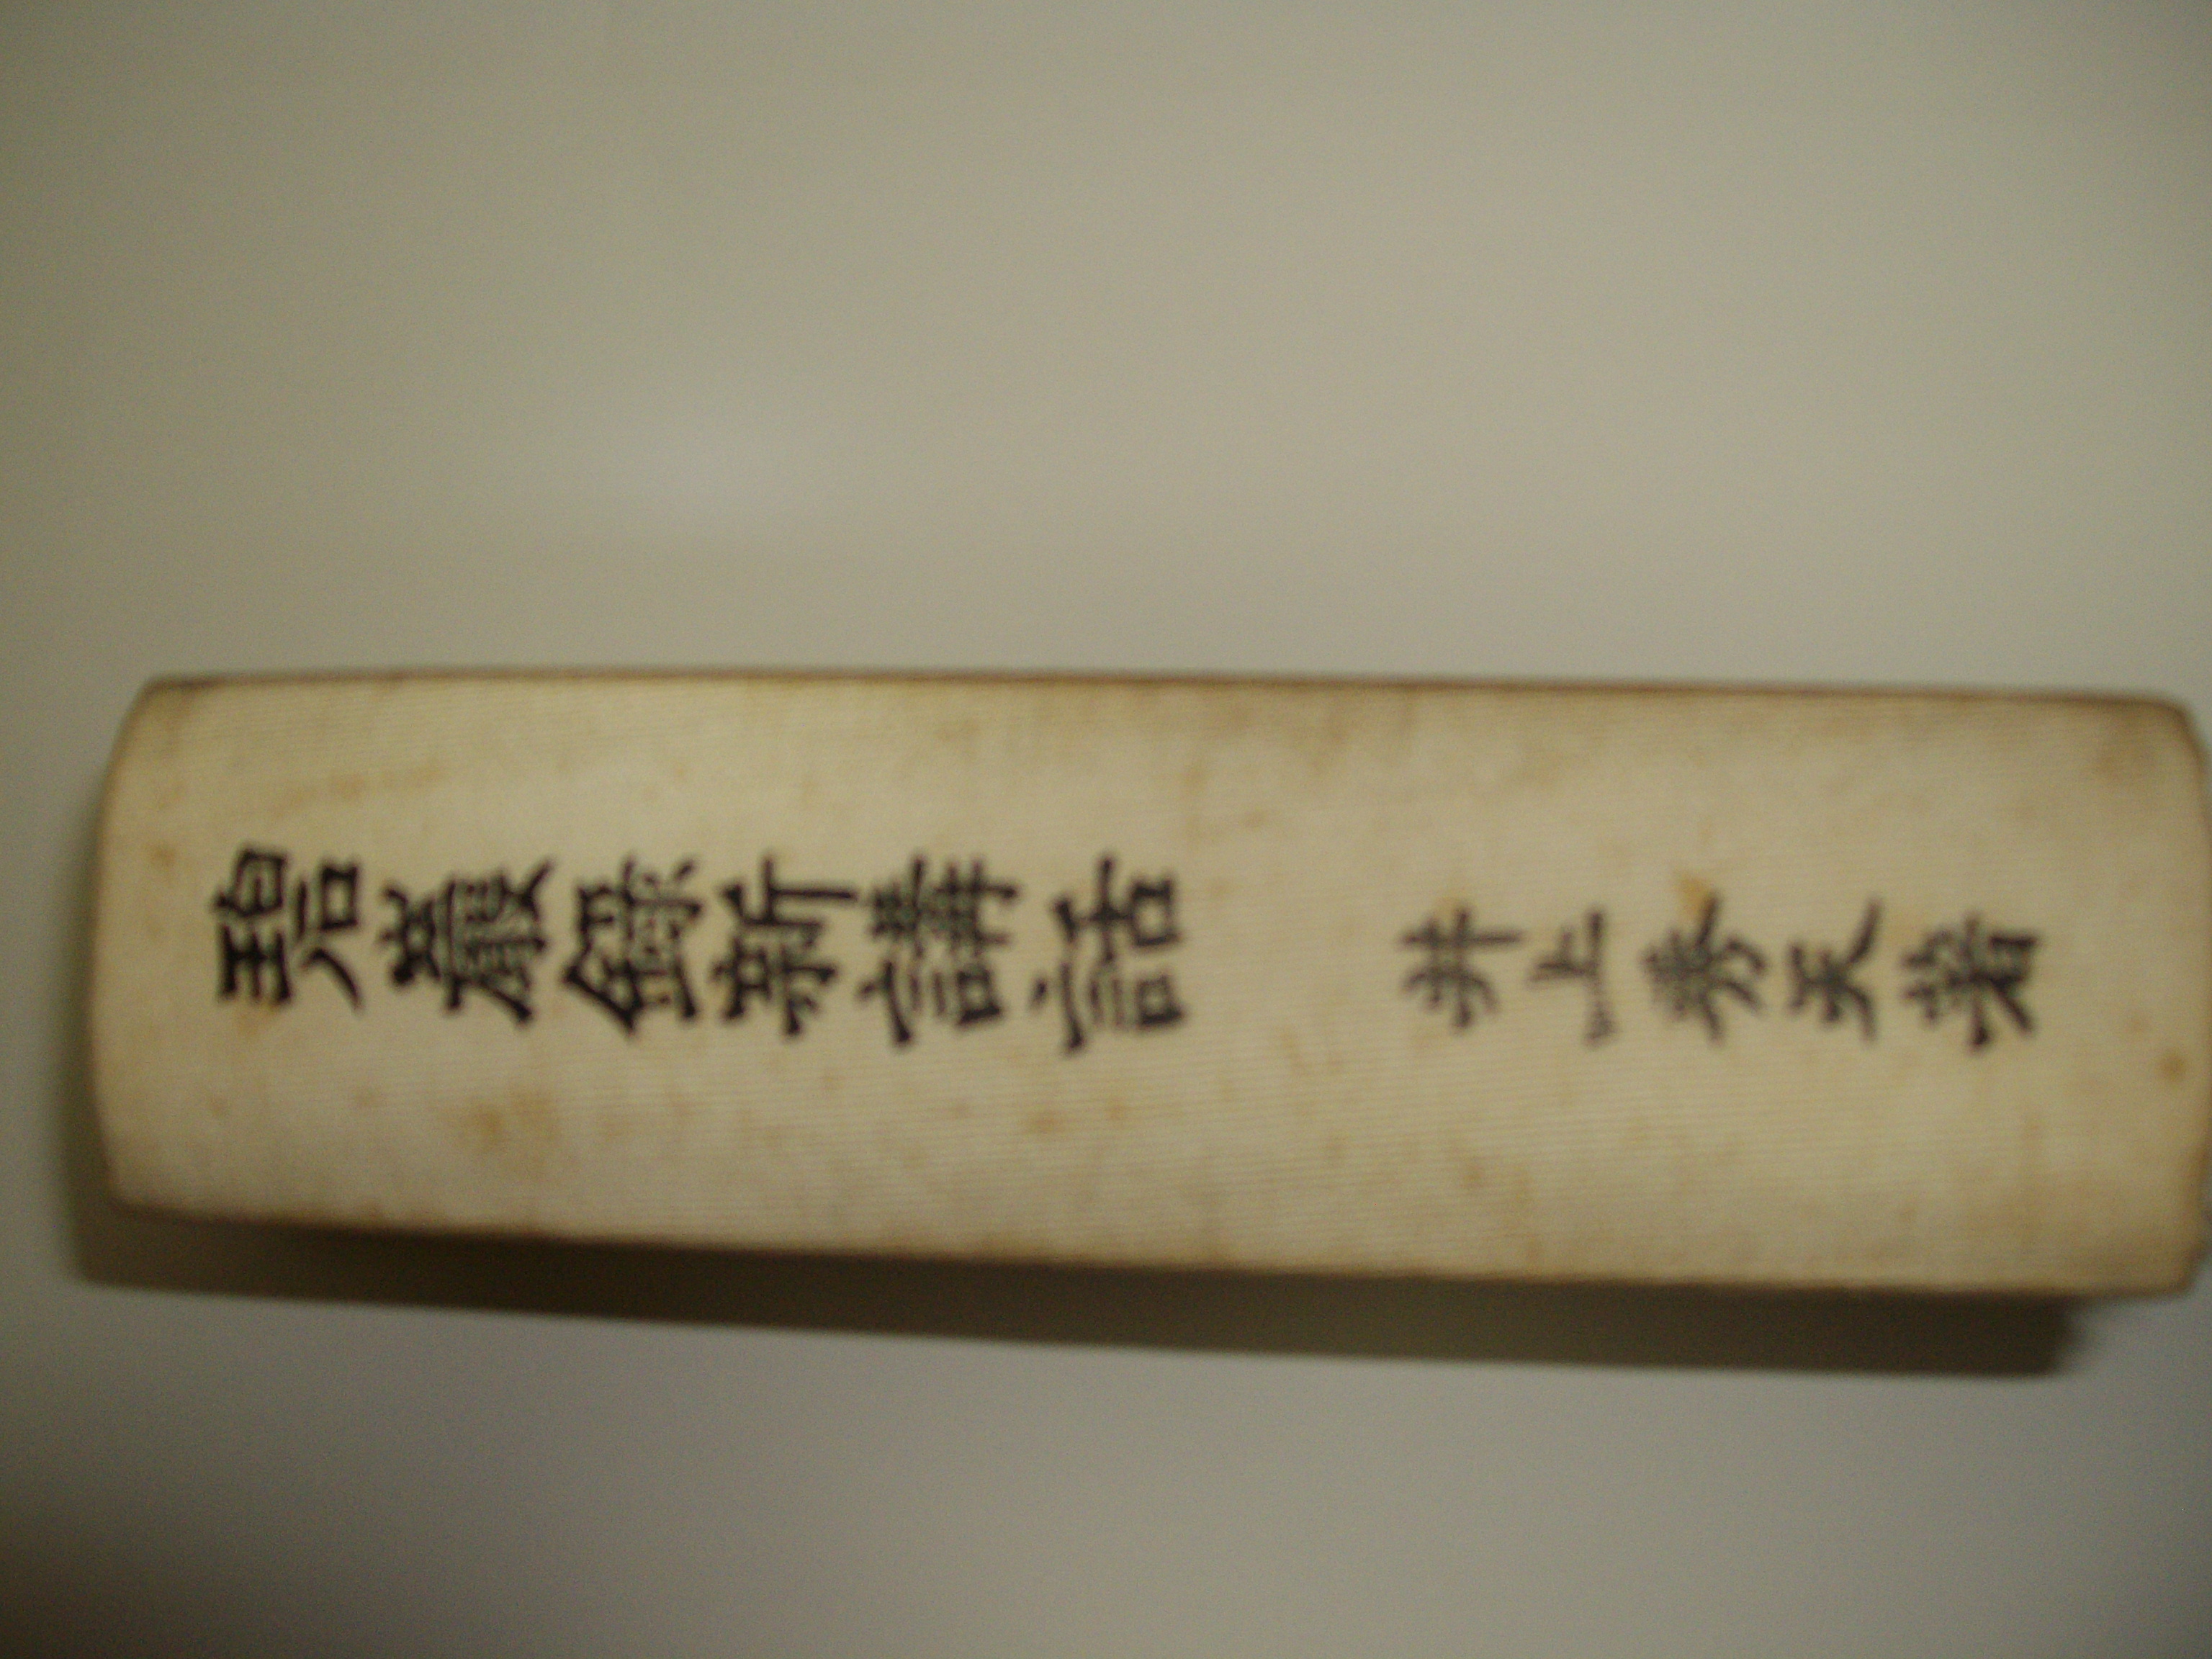 碧巖錄新講話 井上秀天著